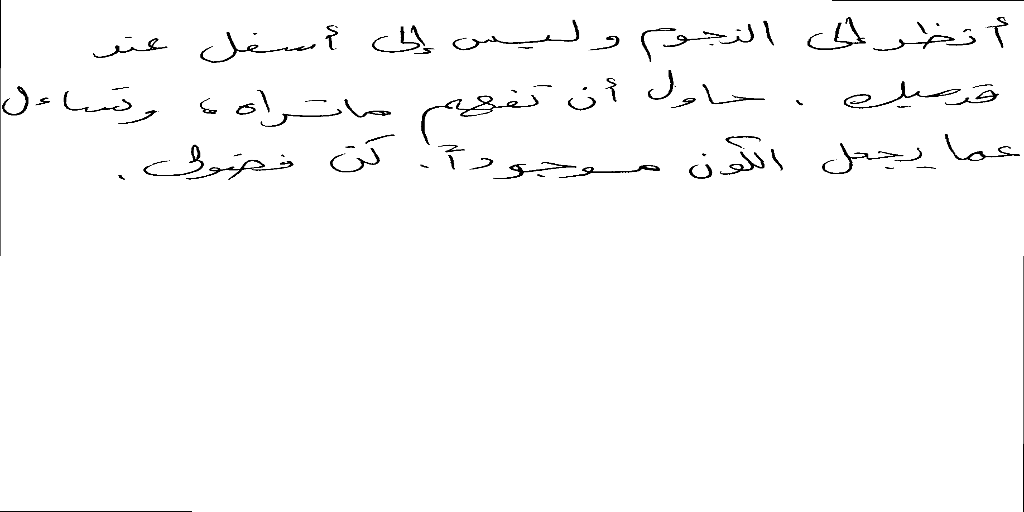 أنظر إلى النجوم وليس إلى أسفل عند
قدميك . حاول أن تفهم ماتراه، وتساءل
عما يجعل الكون موجوداً. كن فضولي .